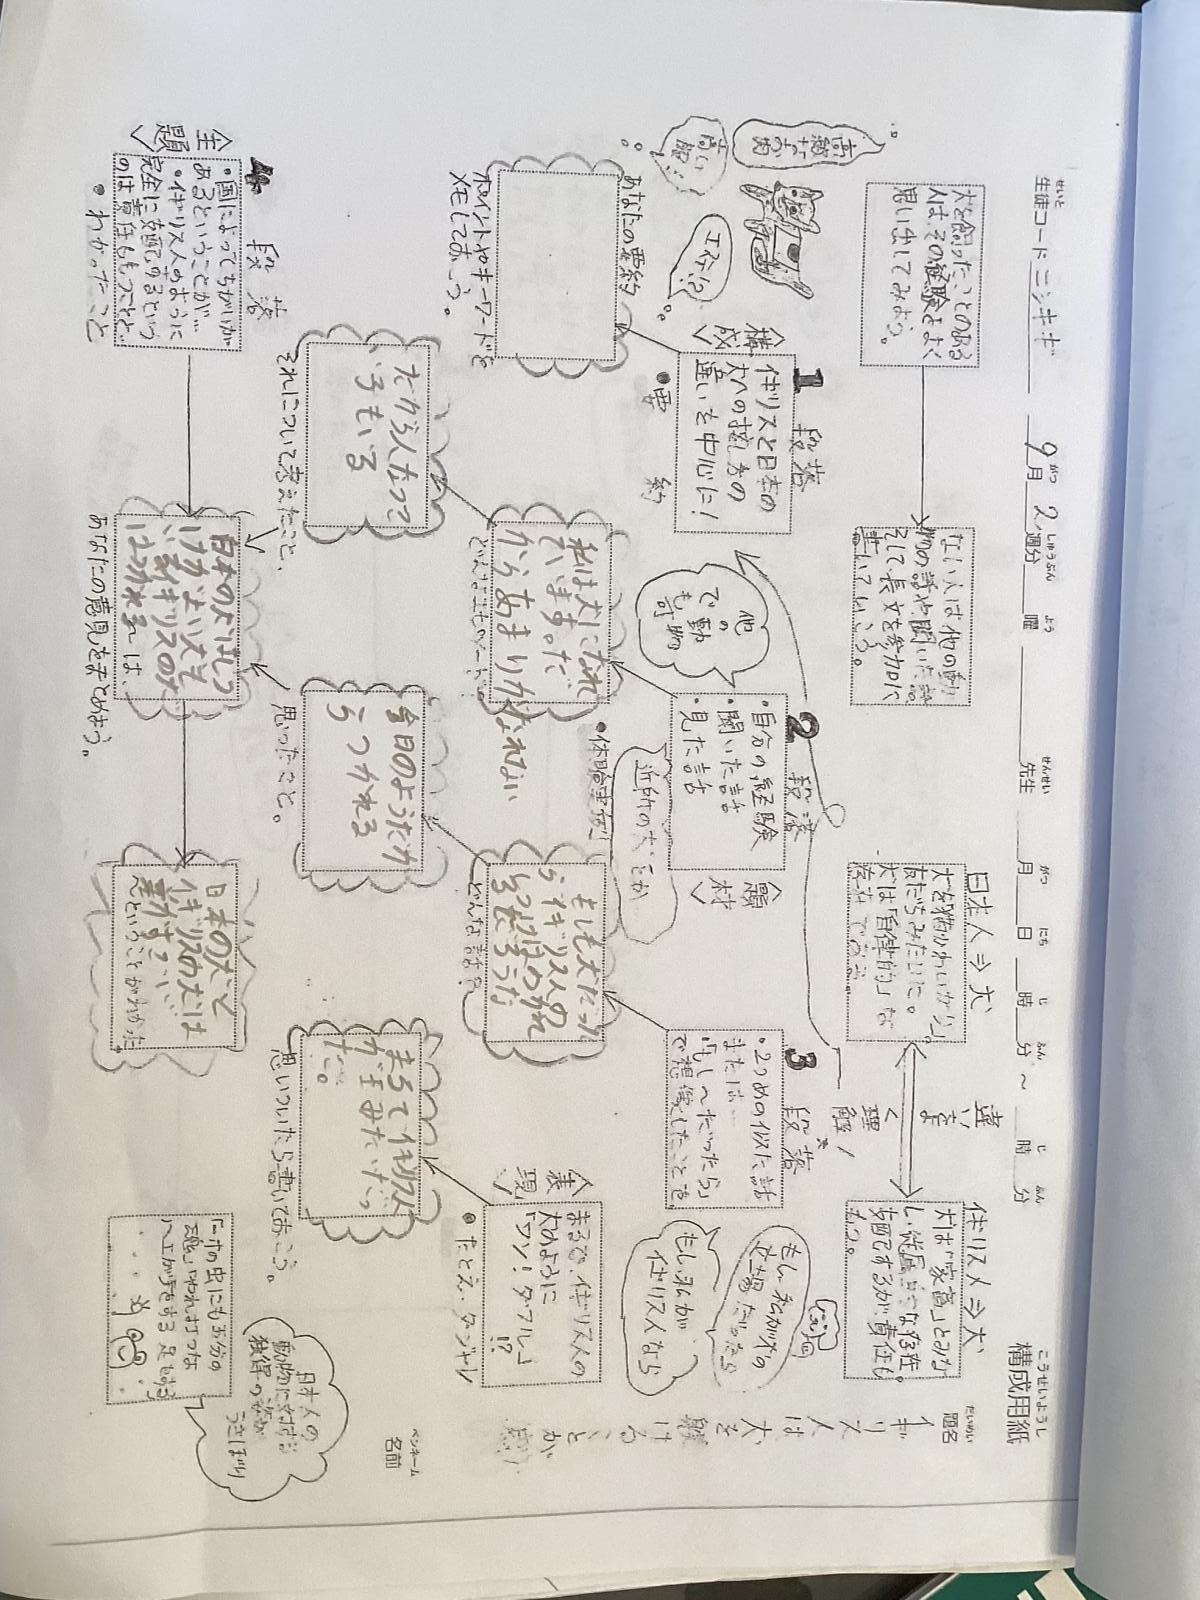 構成用紙
こうせいようし
題名
だいめい
イギリス人は犬を躾けることが
ペンネーム
名前
生徒コード ニシキギ
せいと
9月2週分
がつ しゅうぶん
曜
よう
先生
せんせい
月 日 時 分 ~ 時 分
がつ にち じ ふん じ ふん
犬を飼ったことのある
人はその経験をよく
思い出してみよう。
ない人は他の動
物の話や聞いた話
そして長文を参加に
書いてもよう。
日本人⇒犬
犬を猫かわいがり」。
友だちみたいに。
犬は「自律的」な
違いをよく理解!
イギリス人⇒犬
犬は「家畜」とみな
し、従属的な存在。
支配するが責任も
もつ。
高い服…
エステ!?
1 段落
〈構成〉
イギリスと日本の
犬への接し方の
違いを中心に!
●要約
あなたの要約
ポイントやキーワードを
メモしておこう。
2 段落
〈題材〉
・自分の経験
・聞いた話
・見た話
他の動物でも可
近所の犬とか
●体験実例
私は犬になれ
ています。だ
からあまりか
なれない
どんなエピソード?
だから人なつこい
子もいる
それについて考えたこと、
3 段落
・2つめの似た話
または…
「もし〜だったら」
で想像したことを。
もし、私が犬の
立場だったら
もし、私が
イギリス人なら
もしも犬だった
どんな話?
今日のようだから
つかれる
思ったこと。
〈表現〉
まるで、イギリス人の
犬のように
「ワン!ダフル」
!?
●たとえ・ダジャレ
まるでイギリス人
思いついたら書いておこう。
4 段落
〈主題〉
・国によってちがいが
あるということが…
・イギリス人のように
完全に支配するという
のは責任ももつことと、
●わかったこと
日本の犬はしつ
けがないとも
イギリスの犬
はつかれる〜は、
あなたの意見をまとめよう。
日本の犬と
イギリスの犬は
差がすごい
だということがわかった
「一寸の虫にも五分の
魂」「やれ打つな
ハエが手をする足をする」
日本人の
動物に対する
独得の姿が
うきぼり